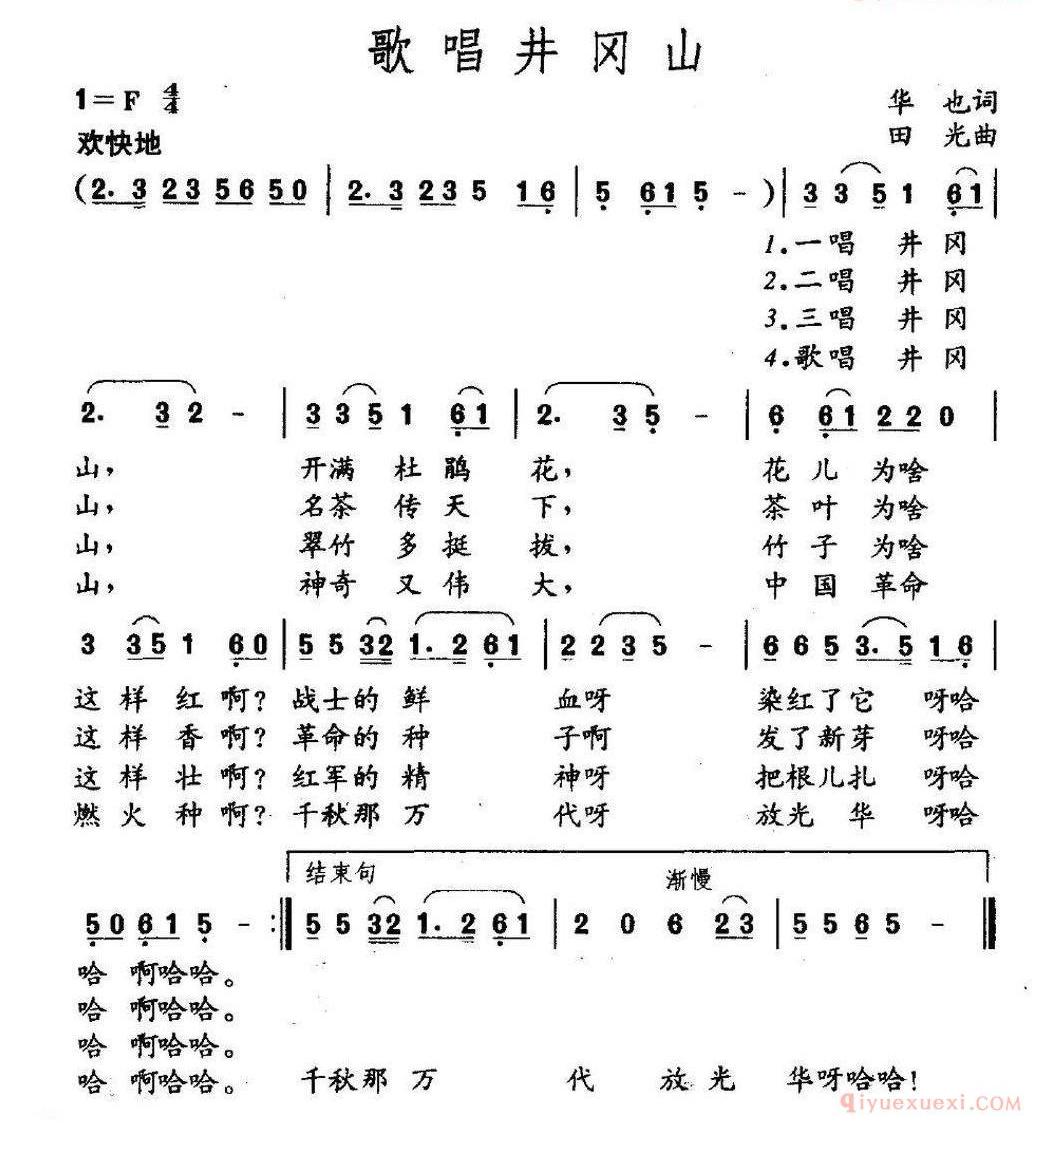 歌唱井冈山
1=F 4/4
华也词
欢快地
田光曲
(2. 3 2 3 5 6 5 0 | 2. 3 2 3 5 1 6 | 5 6 1 5 - ) | 3 3 5 1 6 1 |
1.一唱 井 冈
2.二唱 井 冈
3.三唱 井 冈
4.歌唱 井 冈
2. 3 2 - | 3 3 5 1 6 1 | 2. 3 5 - | 6 6 1 2 2 0 |
山， 开满 杜 鹃 花， 花 儿 为啥
山， 名茶 传 天 下， 茶 叶 为啥
山， 翠竹 多 挺 拔， 竹 子 为啥
山， 神奇 又 伟 大， 中 国 革命
3 3 5 1 6 0 | 5 5 3 2 1. 2 6 1 | 2 2 3 5 - | 6 6 5 3. 5 1 6 |
这 样 红 啊？ 战士的 鲜 血呀 染红了它 呀哈
这 样 香 啊？ 革命的 种 子啊 发了新芽 呀哈
这 样 壮 啊？ 红军的 精 神呀 把根儿扎 呀哈
燃 火 种 啊？ 千秋那 万 代呀 放光 华 呀哈
结束句 渐慢
5 0 6 1 5 - :| 5 5 3 2 1. 2 6 1 | 2 0 6 2 3 | 5 5 6 5 - |
哈 啊哈哈。
哈 啊哈哈。
哈 啊哈哈。
哈 啊哈哈。 千秋那 万 代 放 光 华呀哈哈！
qiyuexuexi.COM